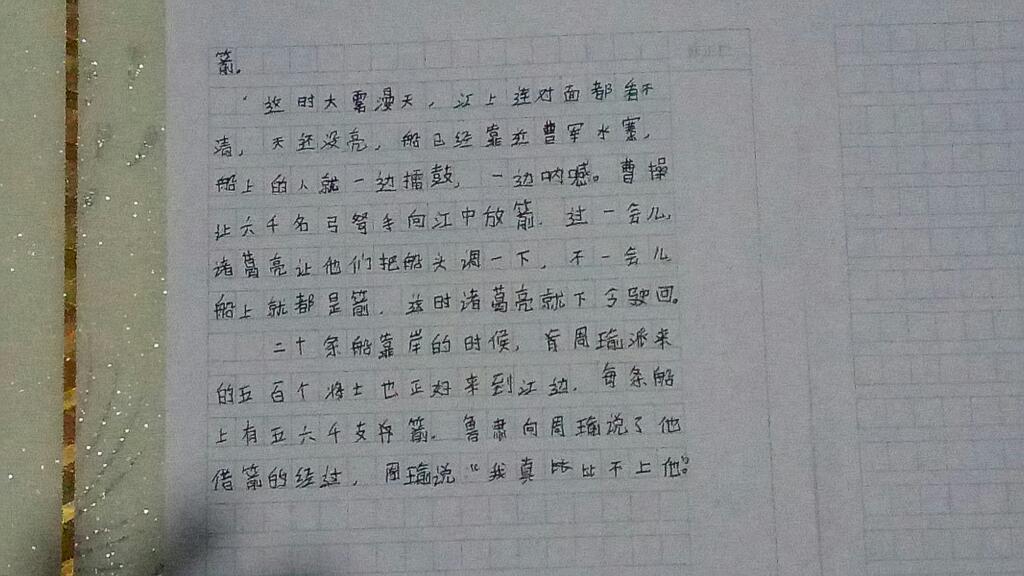 箭。
这时大雾漫天，江上连对面都看不
清，天还没亮，船已经靠近曹军水寨，
船上的人就一边擂鼓，一边呐喊。曹操
让六千名弓弩手向江中放箭．过一会儿，
诸葛亮让他们把船头调一下．不一会儿
船上就都是箭．这时诸葛亮就下令驶回。
二十条船靠岸的时候，周瑜派来
的五百个将士也正好来到江边．每条船
上有五六千支箭．鲁肃向周瑜说了他
借箭的经过，周瑜说“我真比不上他。”